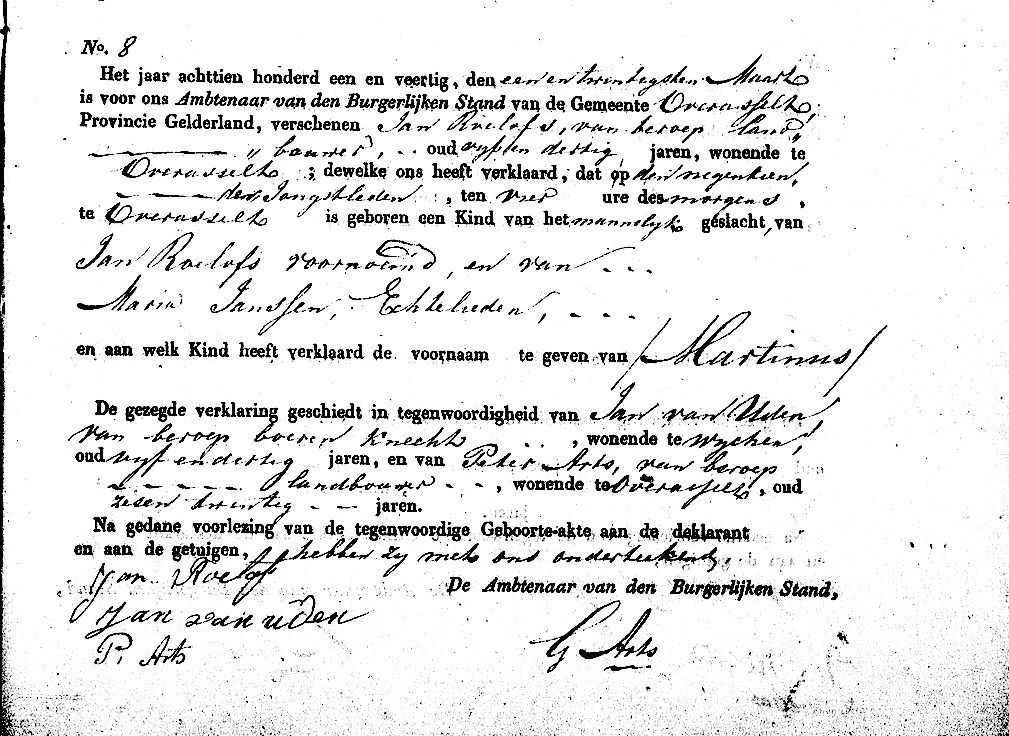 No. 8
Het jaar achttien honderd een en veertig, den een en twintigsten Maart
is voor ons Ambtenaar van den Burgerlijken Stand van de Gemeente Overasselt,
Provincie Gelderland, verschenen Jan Roelofs, van beroep land„
„ bouwer, oud vyf en dertig jaren, wonende te
Overasselt ; dewelke ons heeft verklaard, dat op den negentien,
der Jongstleden, ten vier ure des morgens,
te Overasselt is geboren een Kind van het mannelyk geslacht, van
Jan Roelofs voornoemd, en van - - -
Maria Janssen, Echtelieden, - - - -
en aan welk Kind heeft verklaard de voornaam te geven van /Martinus/
De gezegde verklaring geschiedt in tegenwoordigheid van Jan van Uden
van beroep boeren knecht , wonende te Wychen,
oud vyf en dertig jaren, en van Peter Arts, van beroep
- - - - - landbouwer - - , wonende te Overasselt, oud
zesen twintig - - jaren.
Na gedane voorlezing van de tegenwoordige Geboorte-akte aan de deklarant
en aan de getuigen, hebben zy met ons onderteekend
Jan Roelofs De Ambtenaar van den Burgerlijken Stand,
Jan van uden
P. Arts G Arts